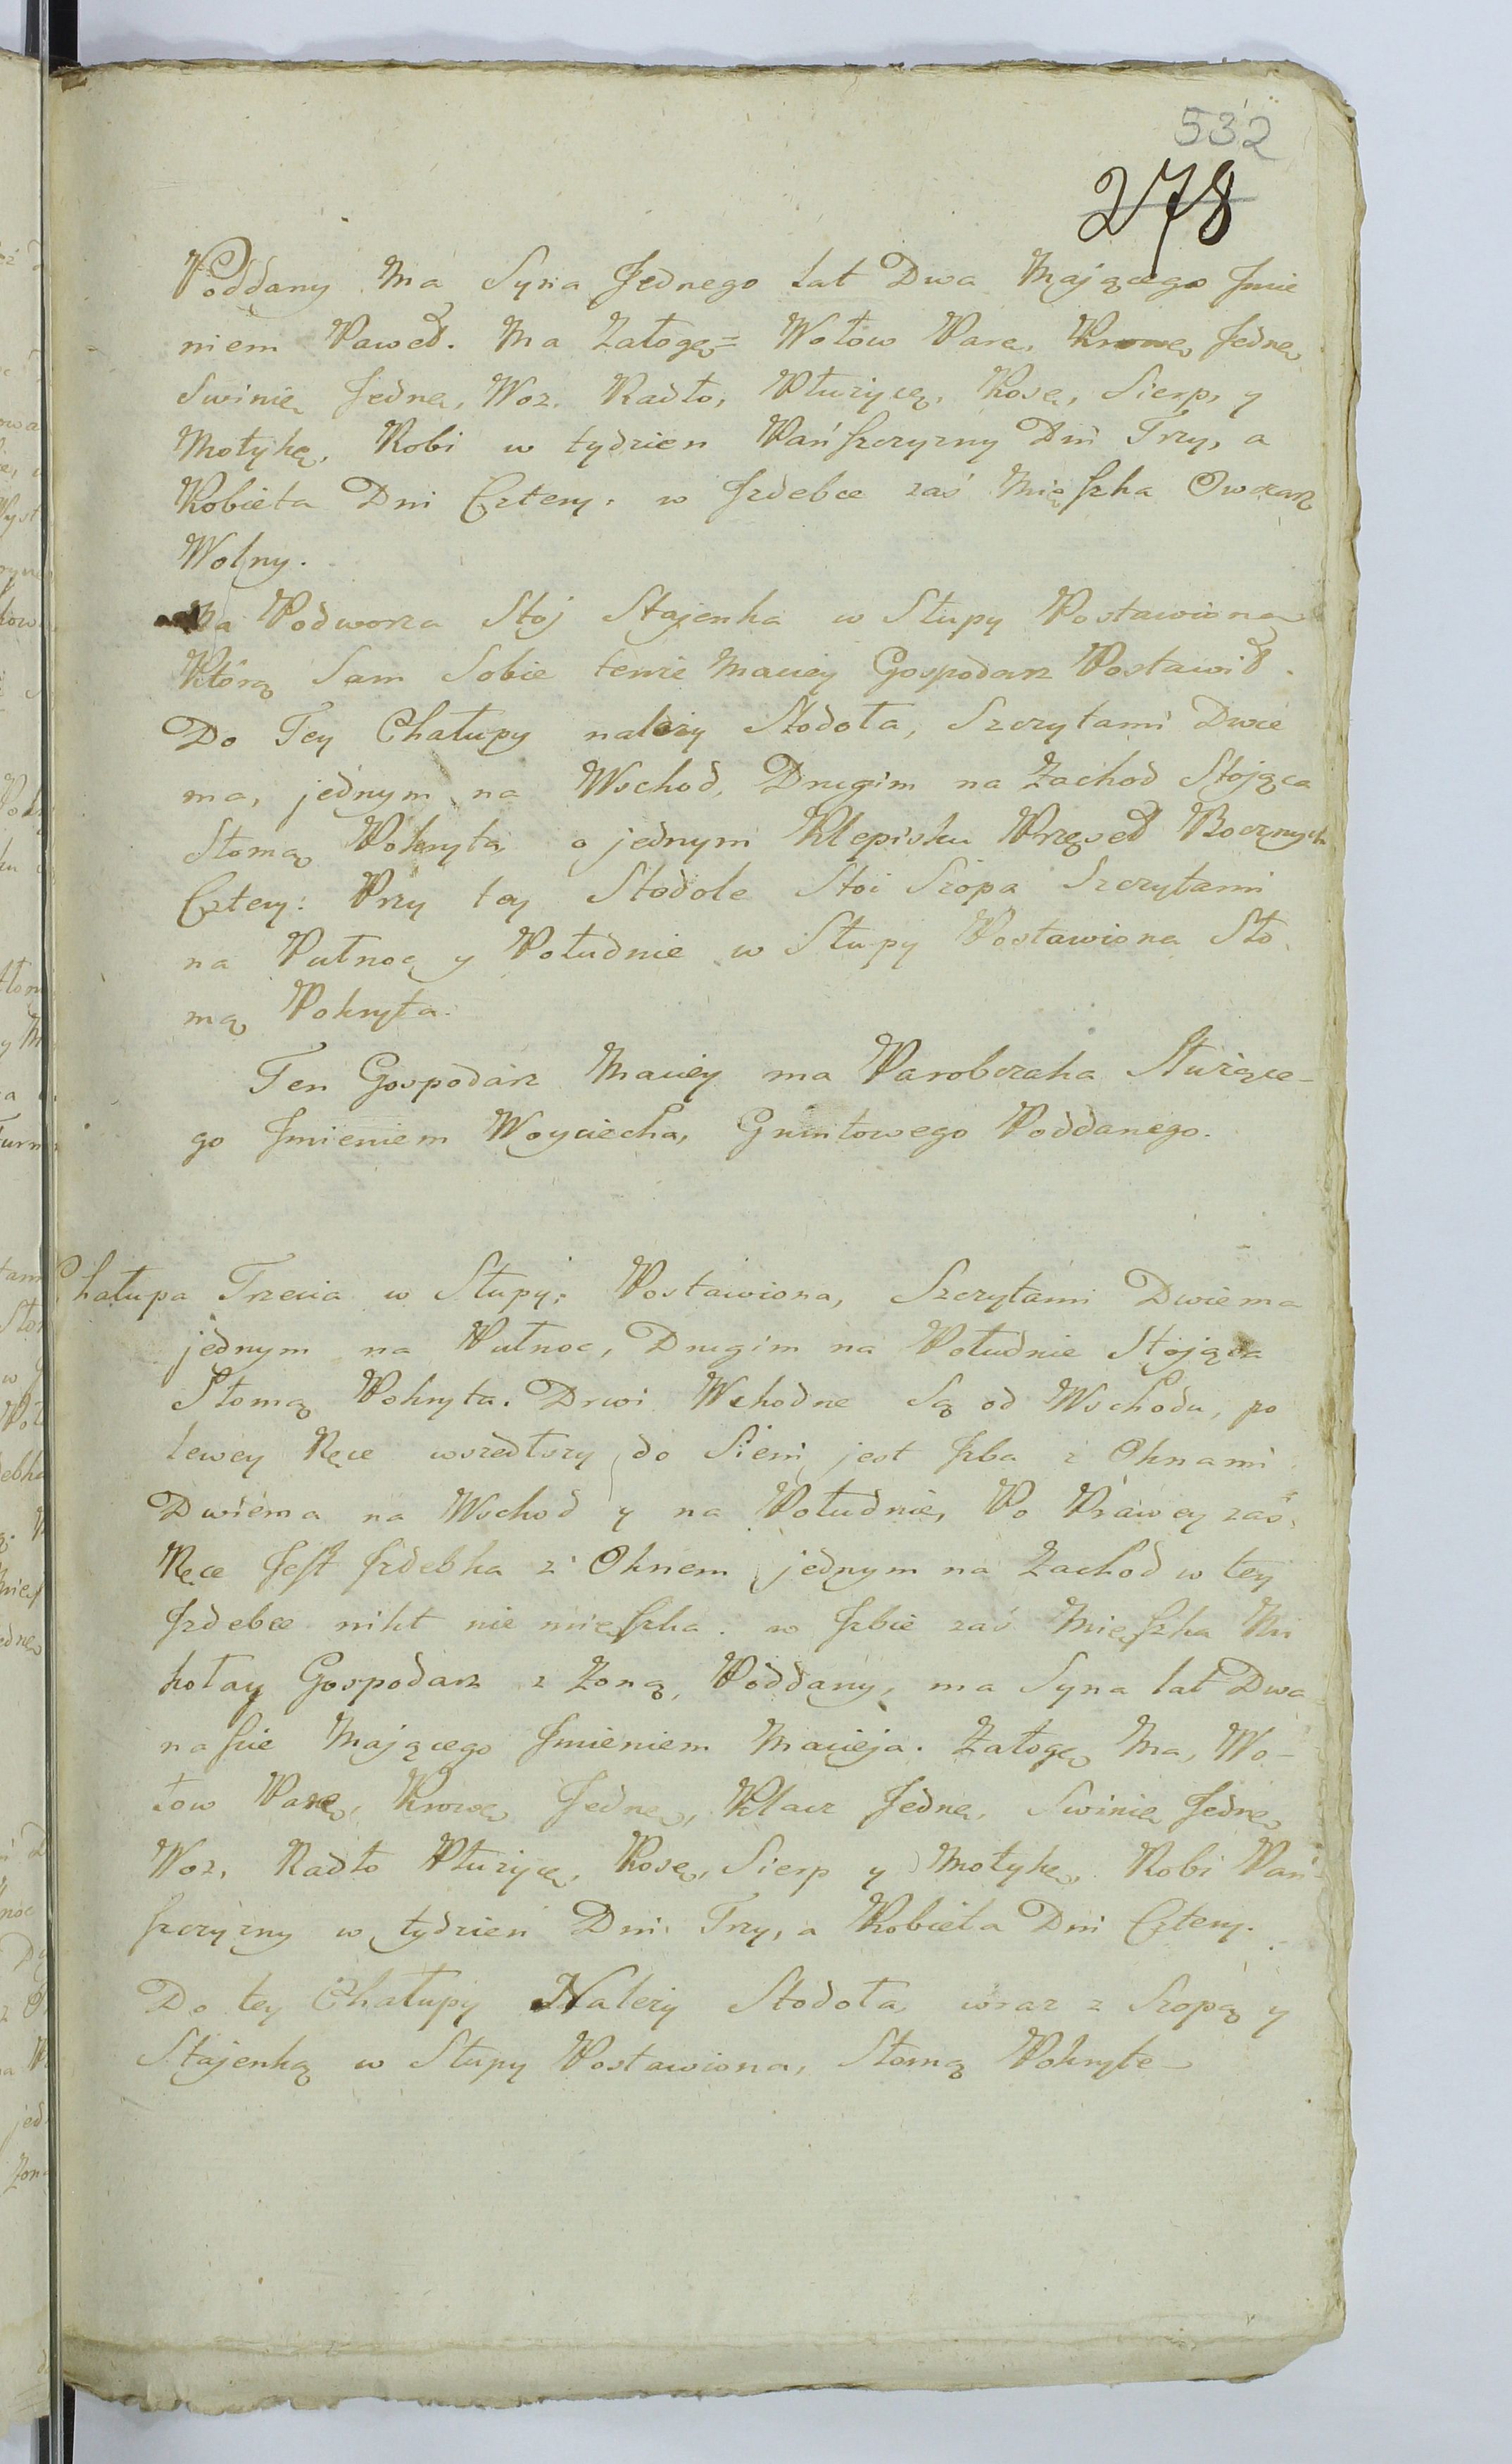 532
278
Poddany Ma Syna Jednego lat Dwa Mającego Jmie
niem Paweł. Ma Załogę = Wołow Parę, Krowę Jednę,
Swinię Jednę, Woz, Radło, Płużycę, Kosę, Sierp, y
Motykę, Robi w tydzien Pańszczyzny Dni Trzy, a
Kobieta Dni Cztery: w Jzdebce zaś Mięszka Owczarz
Wolny.
Na Podworza Stoj Stajenka w Słupy Postawiona
Którą Sam Sobie tenże Maciey Gospodarz Postawił.
Do Tey Chałupy należy Stodoła, Szczytami Dwie
ma, jednym na Wschod, Drugim na Zachod Stojąca
Słomą Pokryta, o jednym Klepisku Przęseł Bocznych
Cztery: Przy tey Stodole Stoi Szopa Szczytami
na Pułnoc y Południe w Słupy Postawiona Sło
mą Pokryta.
Ten Gospodarz Maciey ma Parobczaka Służące-
go Jmieniem Woyciecha, Gruntowego Poddanego.
Chałupa Trzecia w Słupy, Postawiona, Szczytami Dwiema
jednym na Pułnoc, Drugim na Południe Stojąca
Słomą Pokryta. Drwi Wchodne Są od Wschodu, po
lewey Ręce wszedłszy do Sieni jest Jzba z Oknami
Dwiema na Wschod y na Południe, Po Prawey zaś
Ręce Jest Jzdebka z Oknem jednym na Zachod w tey
Jzdebce nikt nie mięszka. w Jzbie zaś Mięszka Mi
kołay Gospodarz z Żoną, Poddany, ma Syna lat Dwa
naście Mającego Jmieniem Macieja. Załogę Ma, Wo-
łow Parę, Krowę Jednę, Klacz Jednę, Swinię Jednę,
Woz, Radło Płużycę, Kosę, Sierp y Motykę, Robi Pań
szczyzny w tydzień Dni Trzy, a Kobieta Dni Cztery.
Do tey Chałupy Należy Stodoła wraz z Szopą y
Stajenką w Słupy Postawiona, Słomą Pokryte